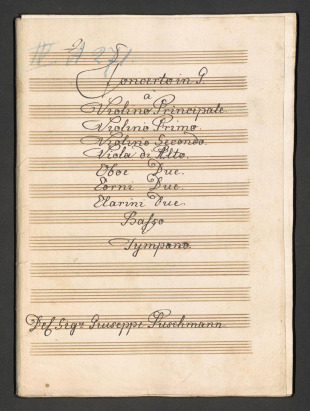 IV. A 271.
Concerto in G.
a
Violino Principale.
Violino Primo.
Violino Secondo.
Viola di Alto.
Oboe Due.
Corni Due.
Clarini Due.
Basso
Tympano.
Del Sigr Giuseppe Puschmann.